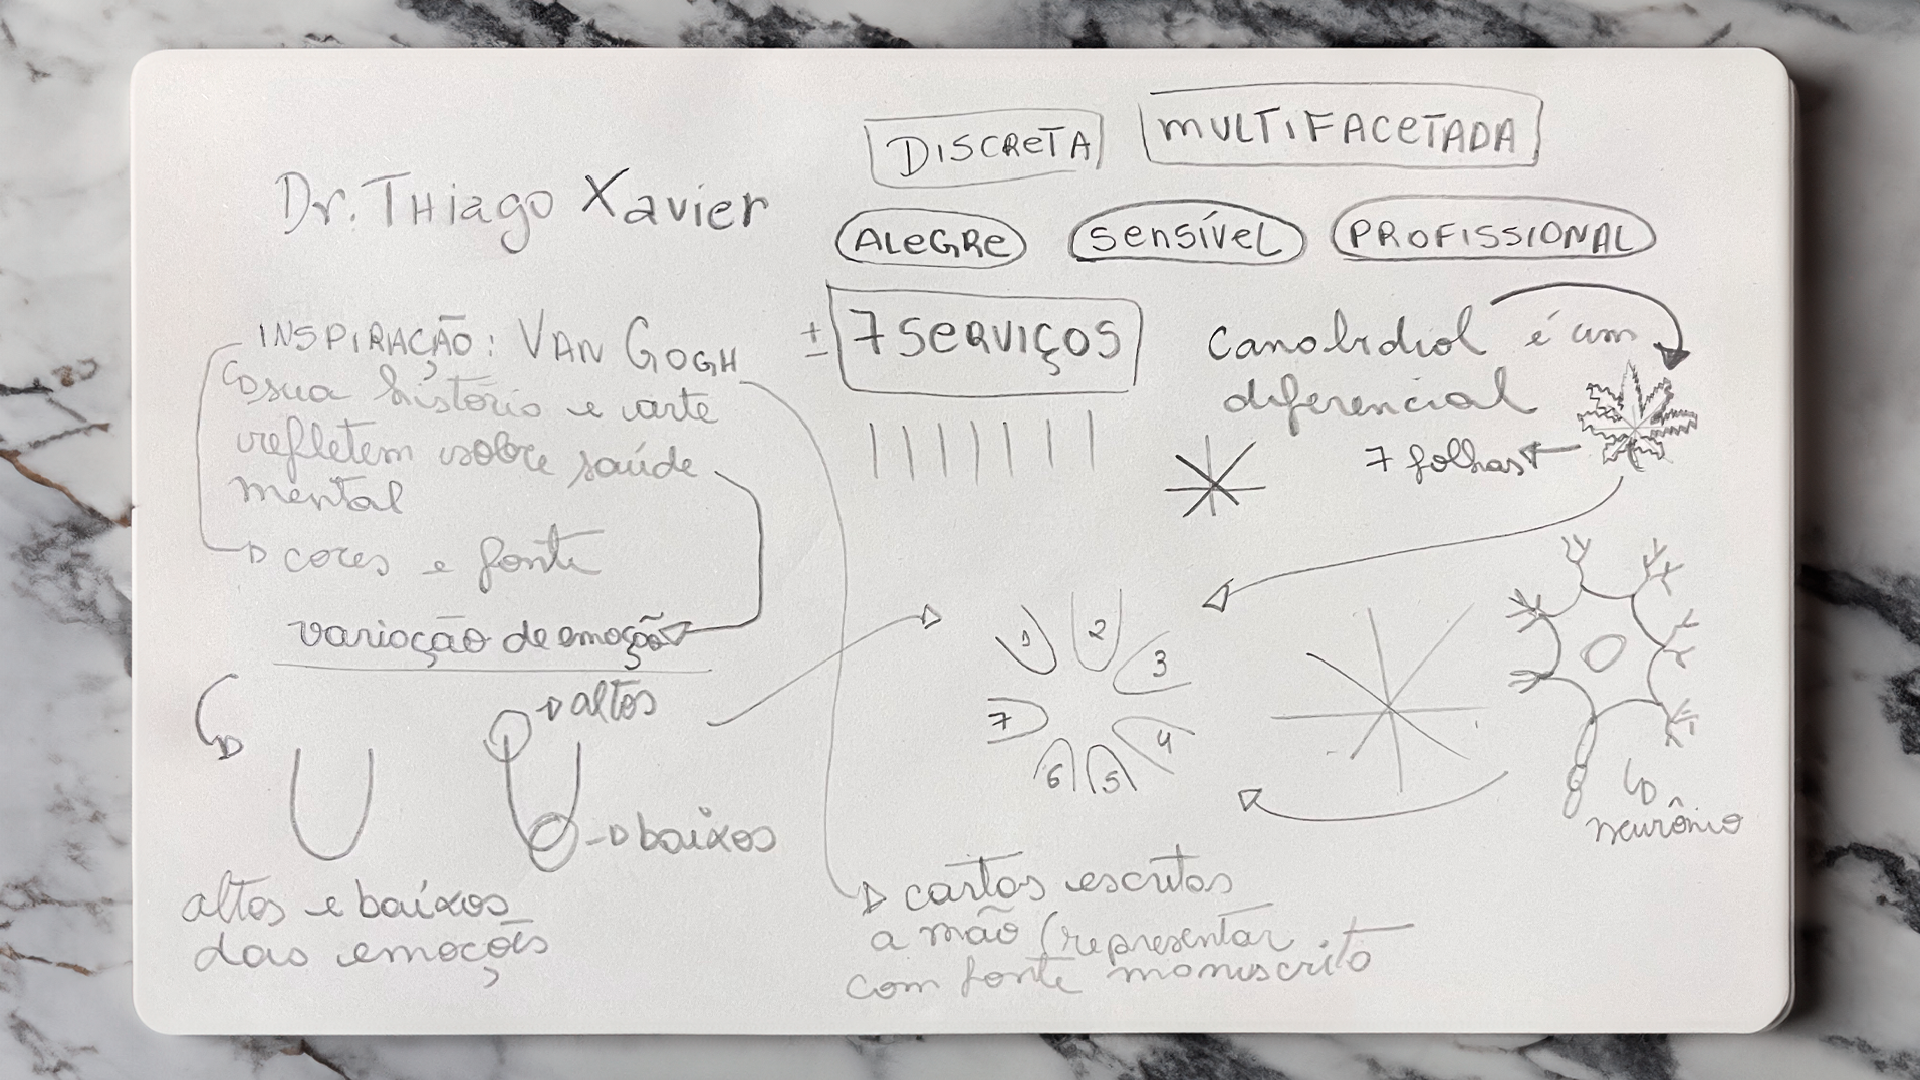 Dr. Thiago Xavier
DISCRETA
MULTIFACETADA
ALEGRE
SENSÍVEL
PROFISSIONAL
INSPIRAÇÃO: VAN GOGH
sua história e arte
refletem sobre saúde
mental
cores e fonte
variação de emoção
altos
baixos
altos e baixos
das emoções
± 7 SERVIÇOS
Canabidiol é um
diferencial
7 folhas
1
2
3
4
5
6
7
neurônio
cartas escritas
a mão (representar
com fonte manuscrita